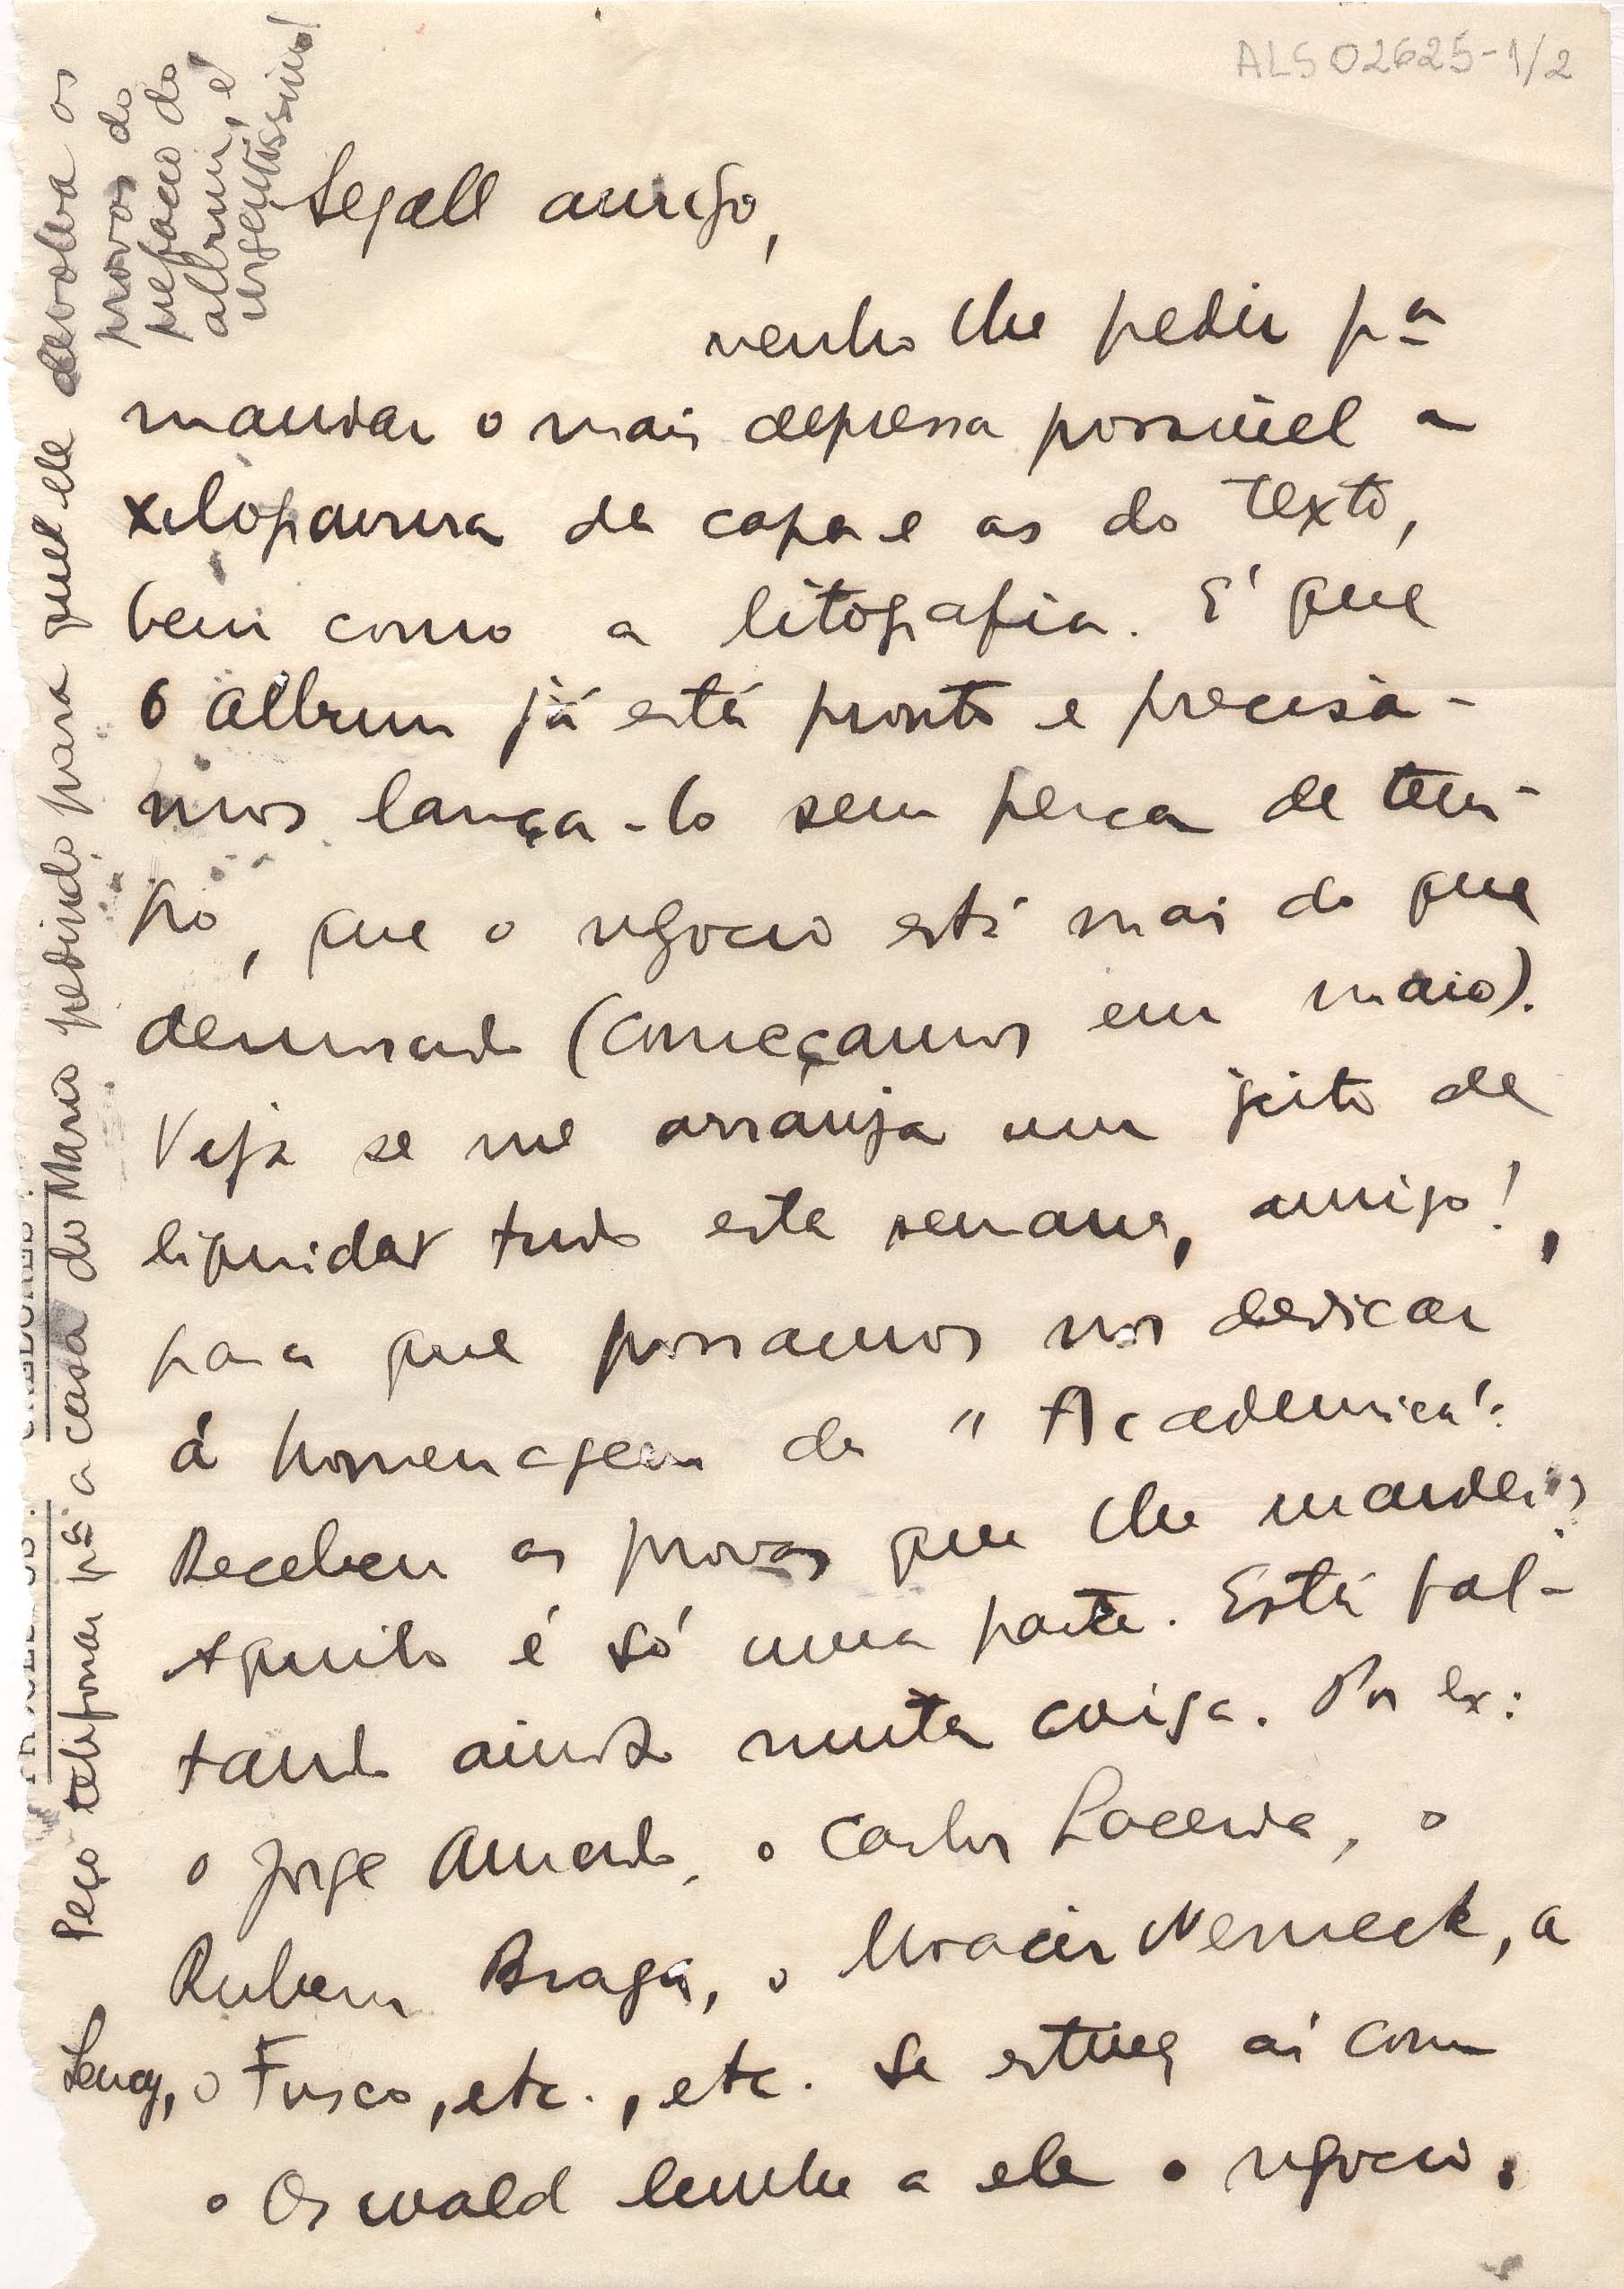 ALS02625-1/2
Segall amigo,
venho lhe pedir pª
mandar o mais depressa possivel a
xilogravura da capa e as do texto,
bem como a litografia. E' que
o album já está pronto e precisa-
mos lança-lo sem perca de tem-
po, que o negocio está mais do que
demorado (começamos em maio).
Veja se me arranja um jeito de
liquidar tudo esta semana, amigo!,
para que possamos nos dedicar
á homenagem da "Academica".
Recebeu as provas que lhe mandei?
Aquilo é só uma parte. Está fal-
tando ainda muita coisa. Por ex:
o Jorge Amado, o Carlos Lacerda, o
Rubem Braga, o Moacir Werneck, a
Lucy, o Fusco, etc., etc. Se estiver aí com
o Oswald lembre a ele o negocio.
Peço telefonar pª a casa do Mario pedindo para quel ele devolva as
provas do
prefacio do
album, é
urgentissimo!